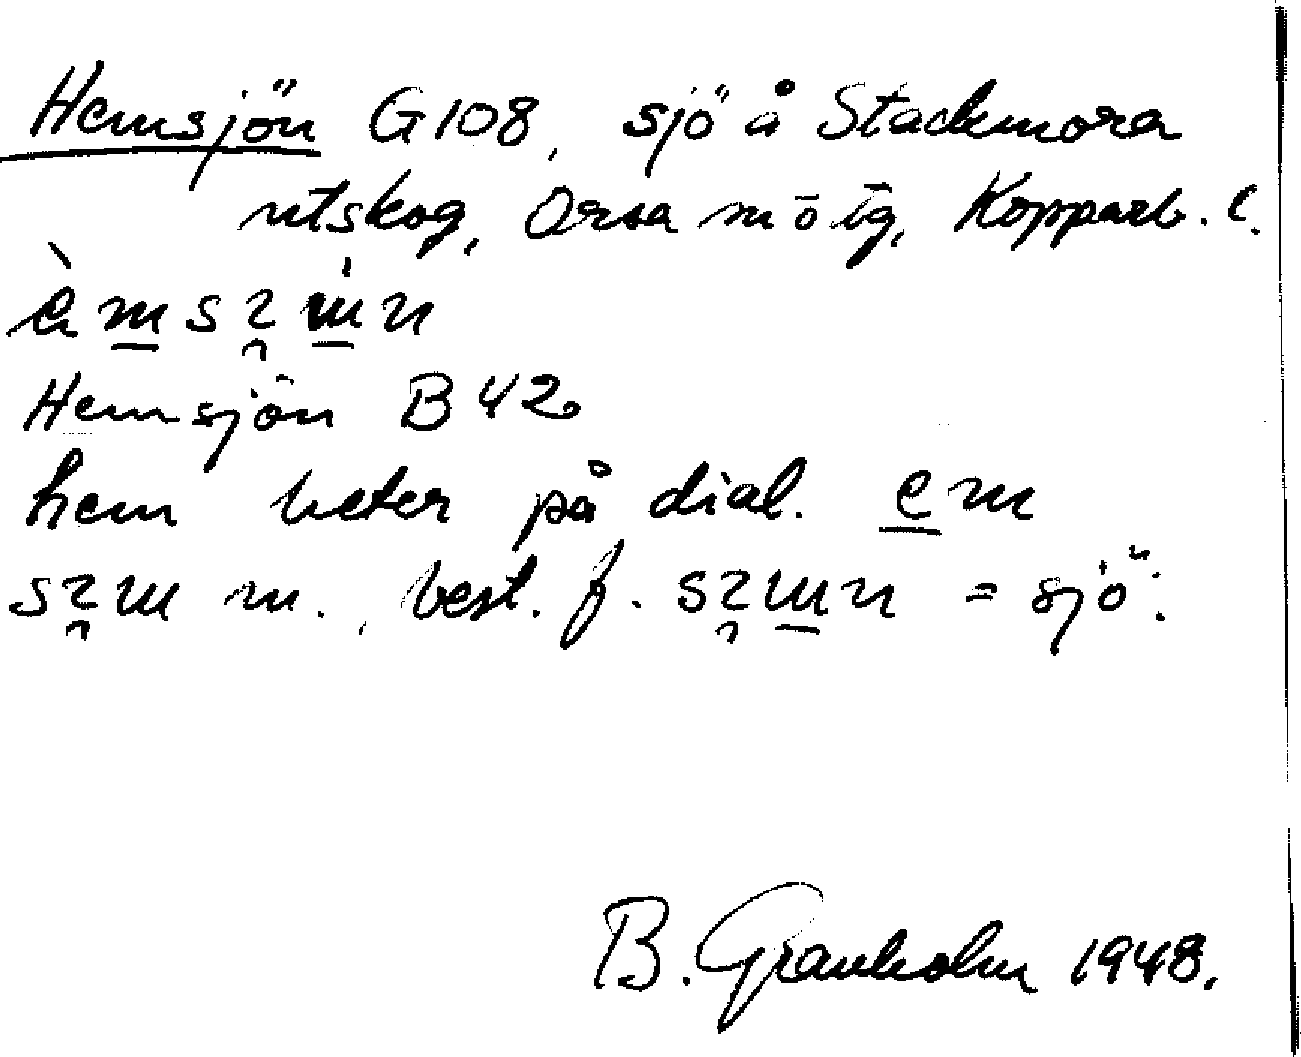 Hemsjön G108, sjö å Stackmora
utskog, Orsa m o tg, Kopparb. l.
èmsɿɯn
Hemsjön B42
hem heter på dial. em
sɿɯ m., best. f. sɿɯn = sjö.
B. Granholm 1948.